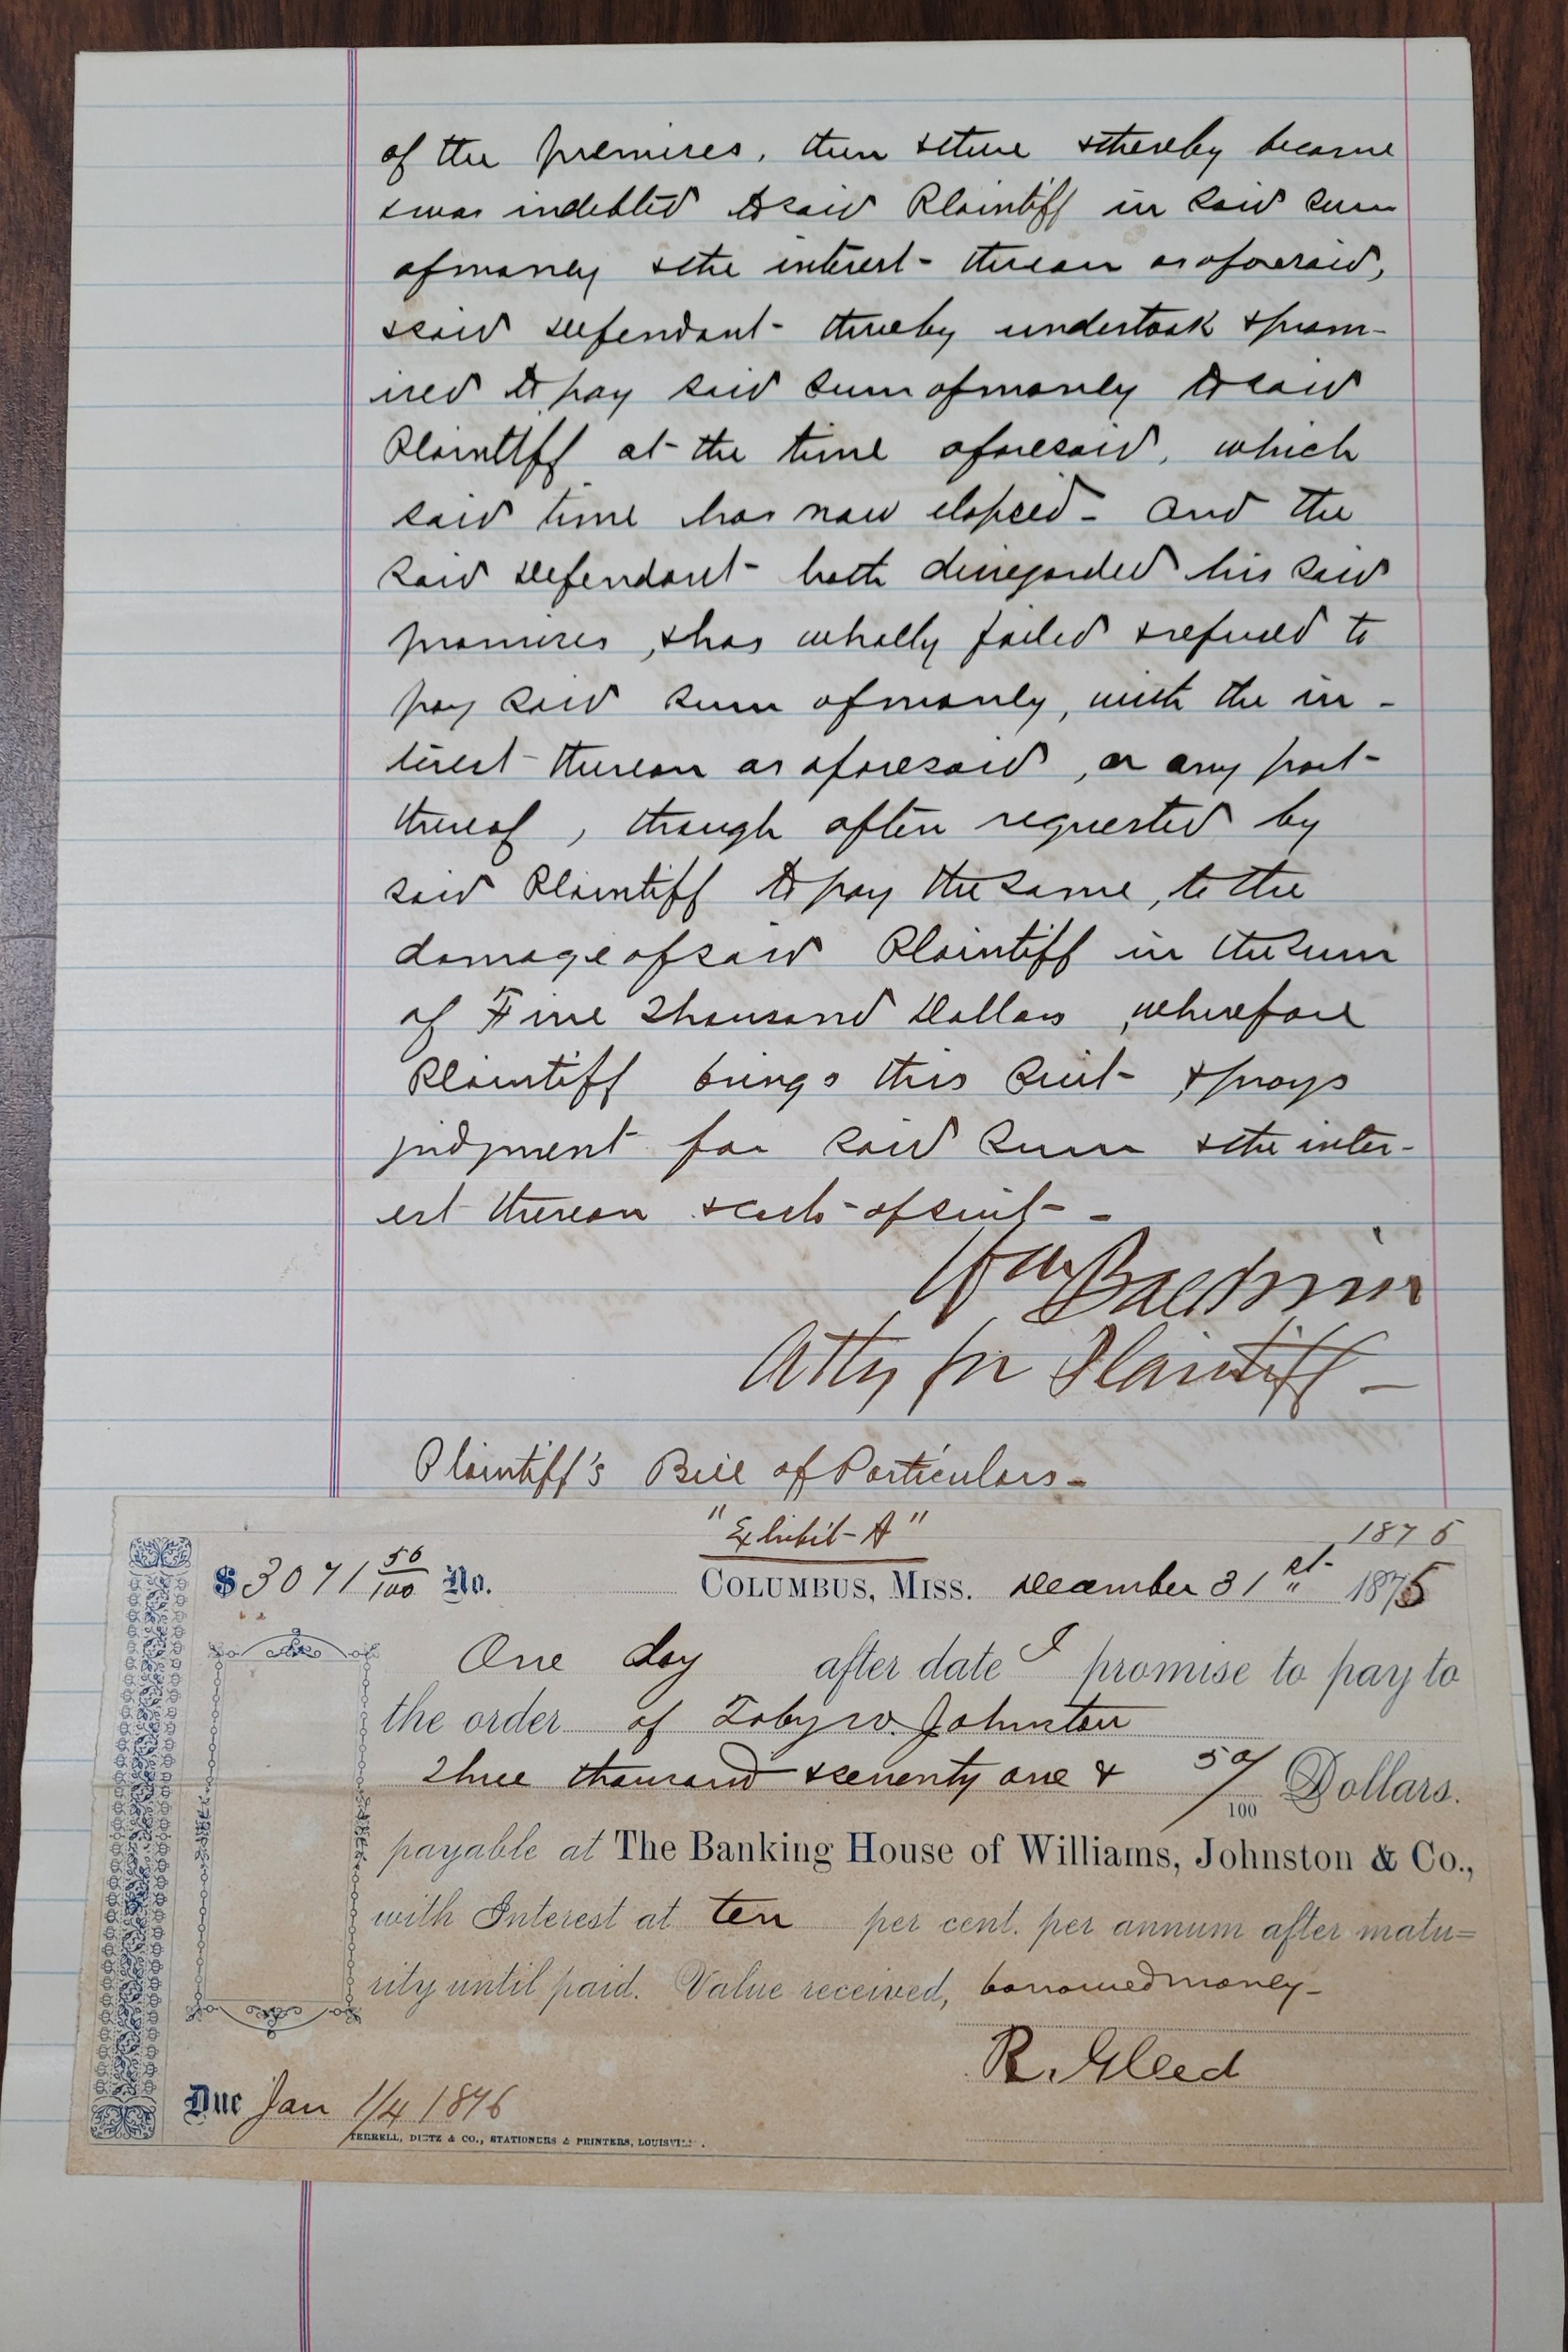 of the premises, then & there & thereby became
& was indebted to said Plaintiff in said sum
of money & the interest thereon as aforesaid,
& said defendant thereby undertook & prom-
ised to pay said sum of money to said
Plaintiff at the time aforesaid, which
said time has now elapsed - And the
said defendant hath disregarded his said
promises, & has wholly failed & refused to
pay said sum of money, with the in-
terest thereon as aforesaid, or any part
thereof, though often requested by
said Plaintiff to pay the same, to the
damage of said Plaintiff in the sum
of Five Thousand Dollars, wherefore
Plaintiff brings this suit, & prays
judgment for said sum & the inter-
est thereon & costs of suit -
Wm Baldwin
Atty for Plaintiff -
Plaintiff's Bill of Particulars -
"Exhibit A"
1875
$3071 50/100 No. COLUMBUS, MISS. December 31st 1875
One day after date I promise to pay to
the order of Toby W. Johnston
Three thousand & seventy one & 50/100 Dollars.
payable at The Banking House of Williams, Johnston & Co.,
with Interest at ten per cent. per annum after matu=
rity until paid. Value received, borrowed money -
R. Gleed
Due Jan 1/4 1876
TERRELL, DIETZ & CO., STATIONERS & PRINTERS, LOUISVILLE.